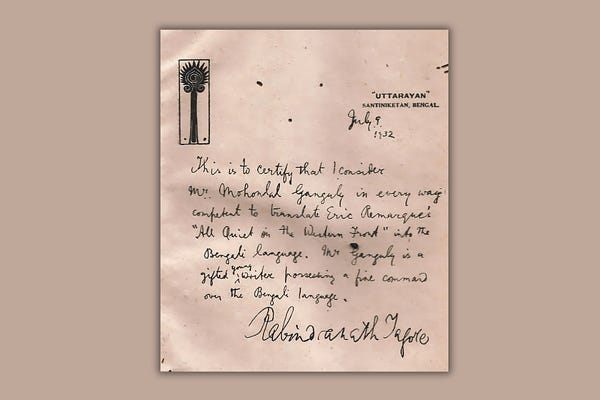 "UTTARAYAN"
SANTINIKETAN, BENGAL.
July 9
1932
This is to certify that I consider
Mr. Mohonlal Ganguly in every way
competent to translate Eric Remarque's
"All Quiet on the Western Front" into the
Bengali language. Mr Ganguly is a
gifted young writer possessing a fine command
over the Bengali language.
Rabindranath Tagore